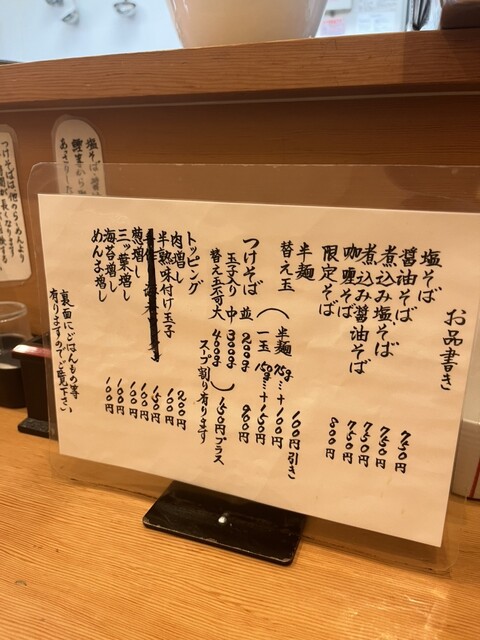 お品書き
塩そば 750円
醤油そば 750円
煮込み塩そば 750円
煮込み醤油そば 750円
咖喱そば 800円
限定そば
半麺 100円引き
替え玉(半麺 75g…+100円
一玉 150g…+150円)
つけそば 並 200g 960円
玉子入り 中 300g 150円プラス
替え玉不可 大 400g
スープ割り有ります
トッピング
肉増し 200円
半熟味付け玉子 100円
葱増し 150円
三ッ葉増し 100円
海苔増し 100円
めんま増し 100円
裏面にごはんもの等
有りますのでご覧下さい
塩そば、醤油
あっさりした
つけそばは他のらーめんより